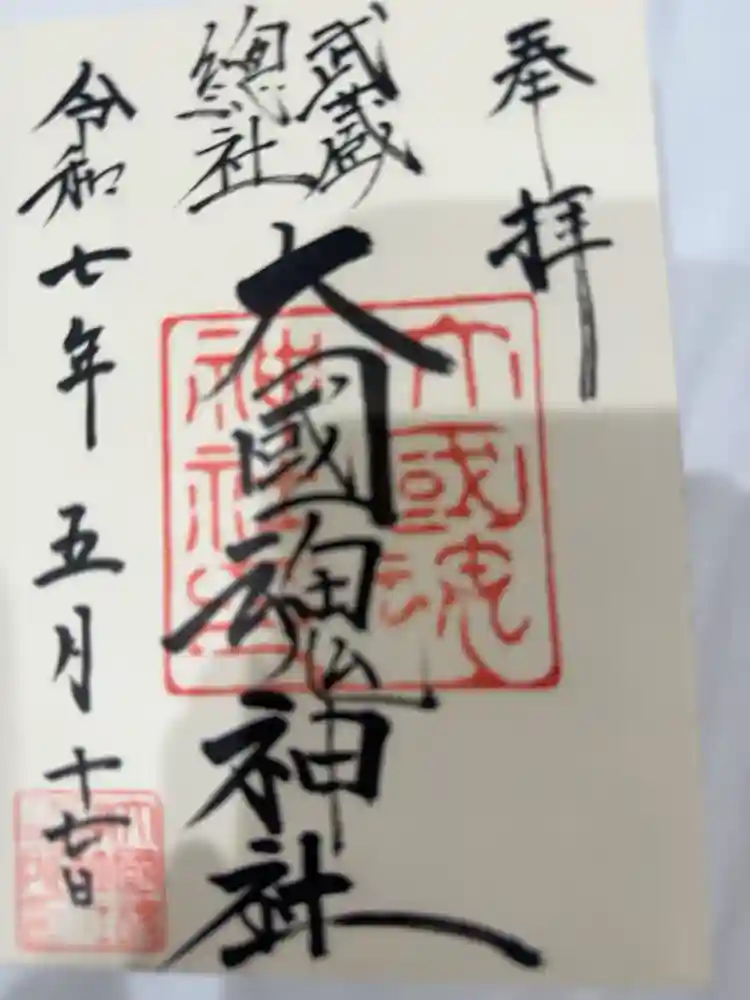 奉拝
武蔵
總社
大國魂神社
大國魂
神社
令和七年五月十七日